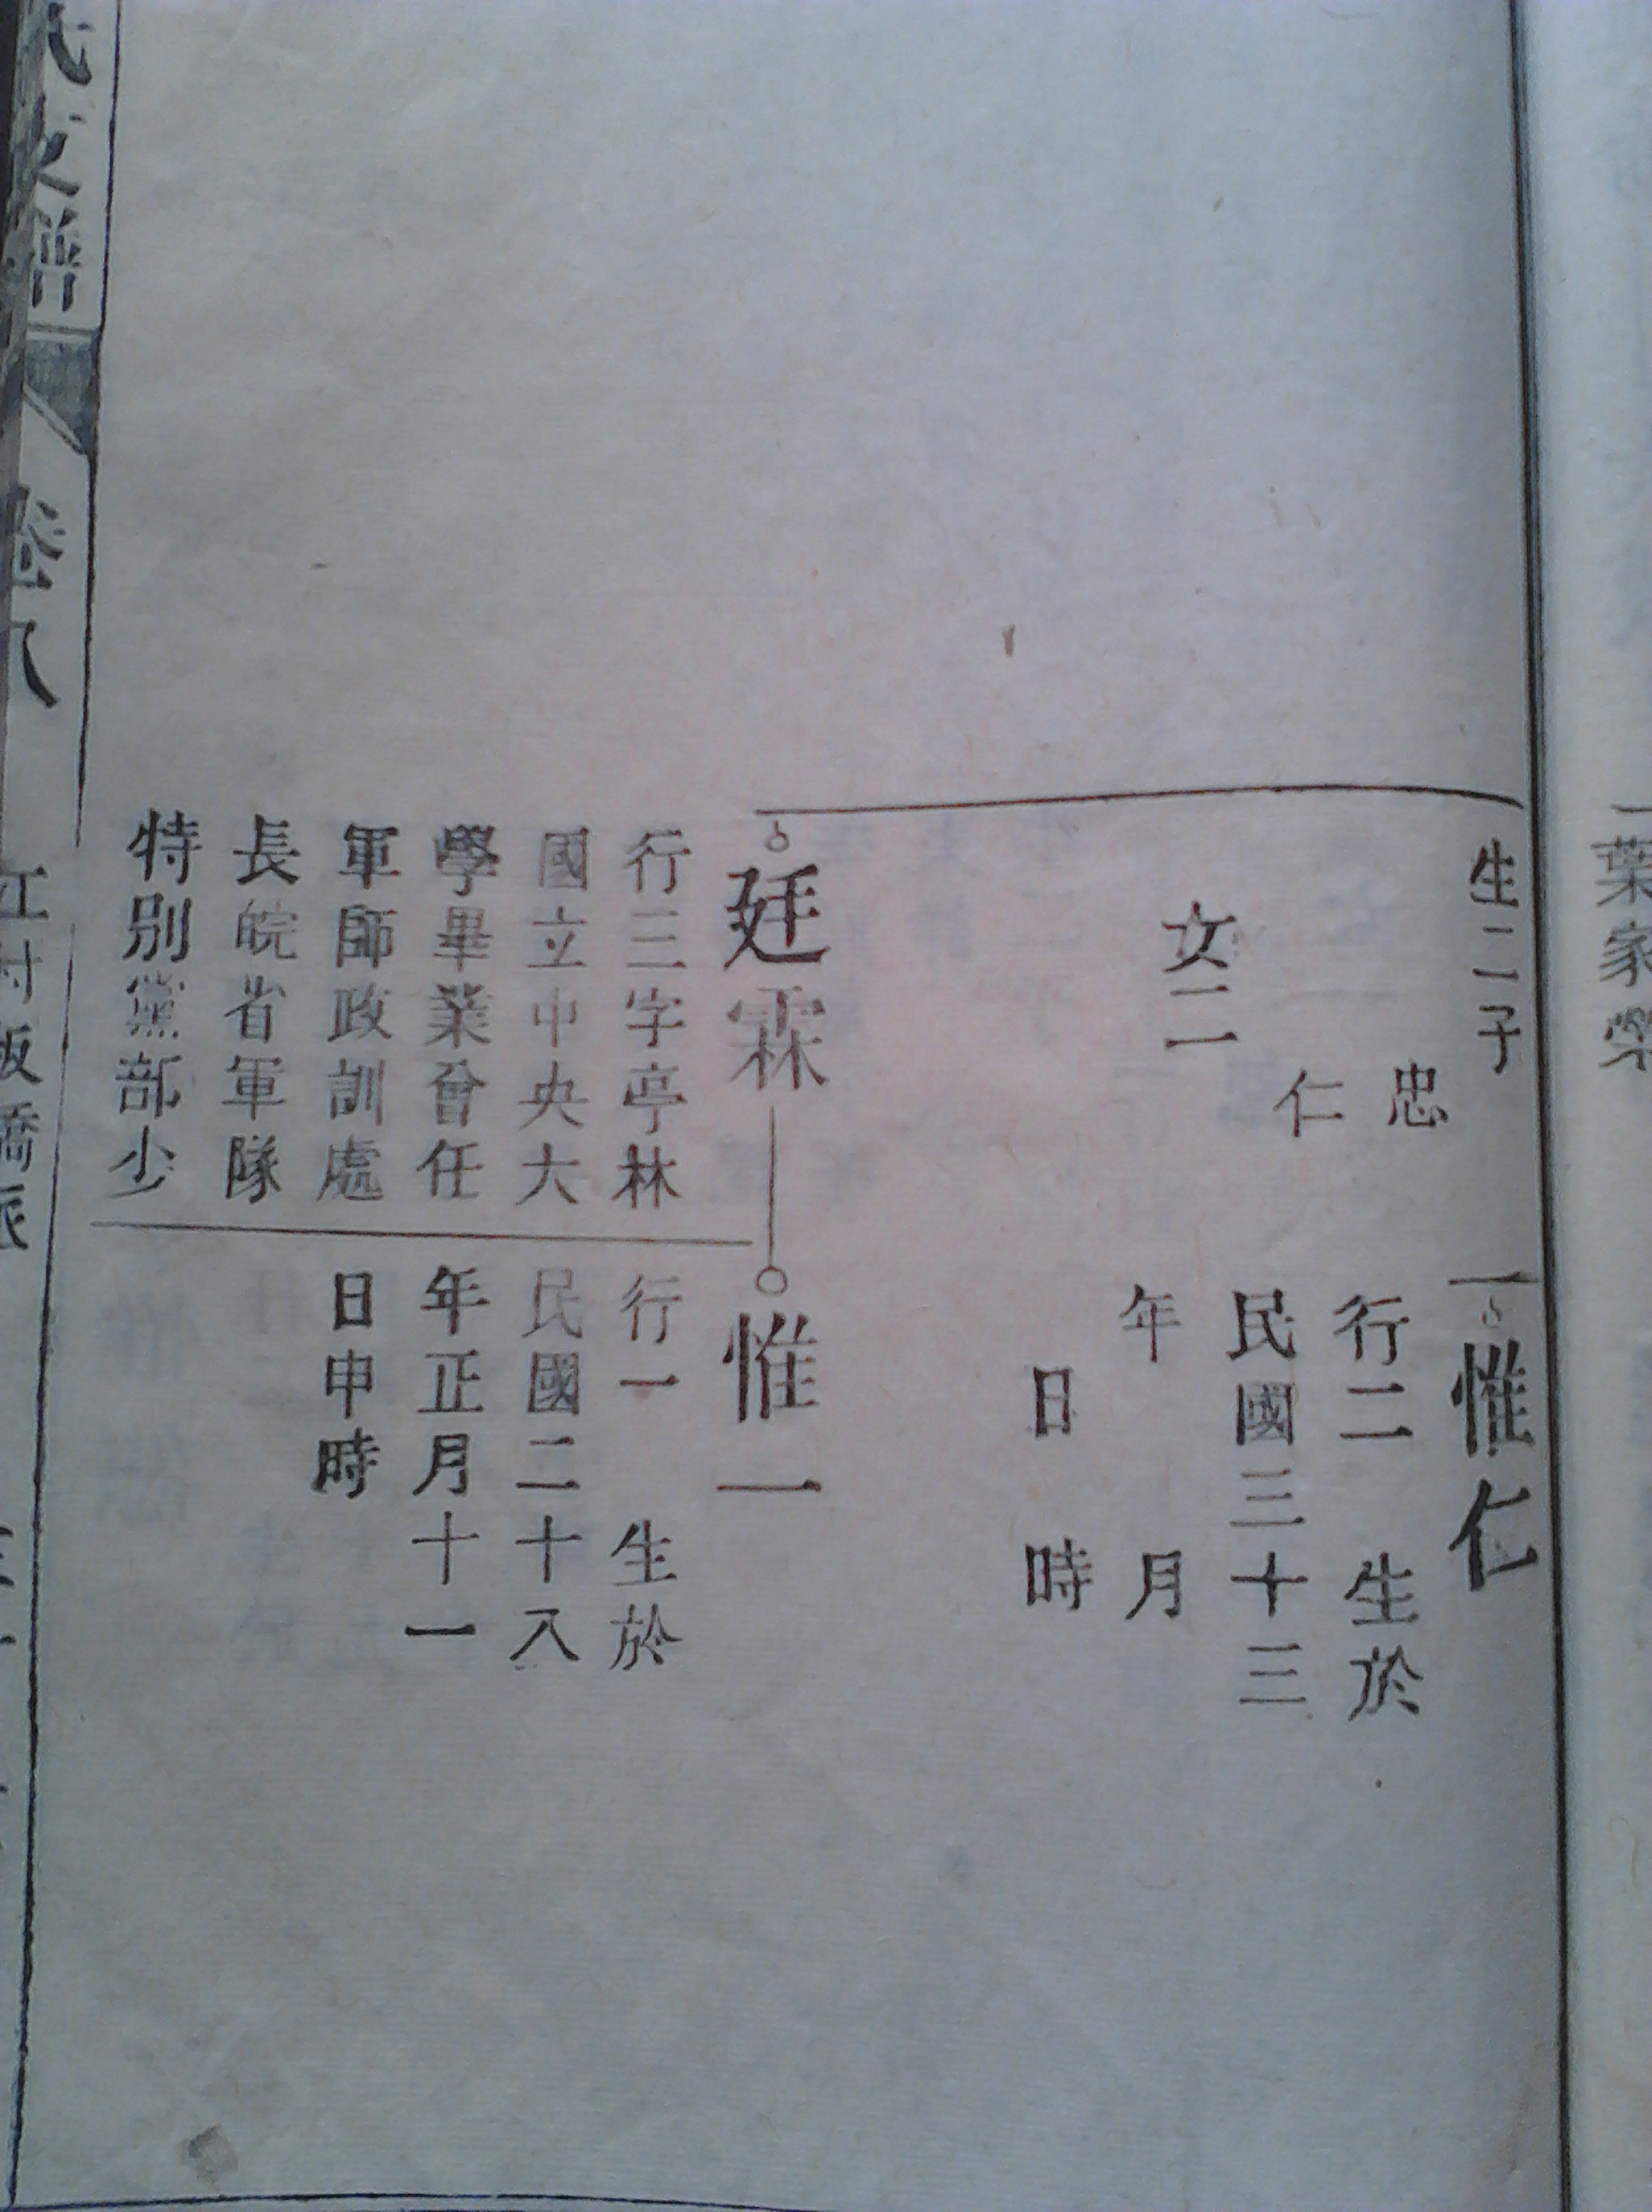 葉家
生二子
忠
仁
女二
惟仁
行二 生於
民國三十三
年 月
日 時
廷霖
行三字亭林
國立中央大
學畢業曾任
軍師政訓處
長皖省軍隊
特別黨部少
惟一
行一 生於
民國二十八
年正月十一
日申時